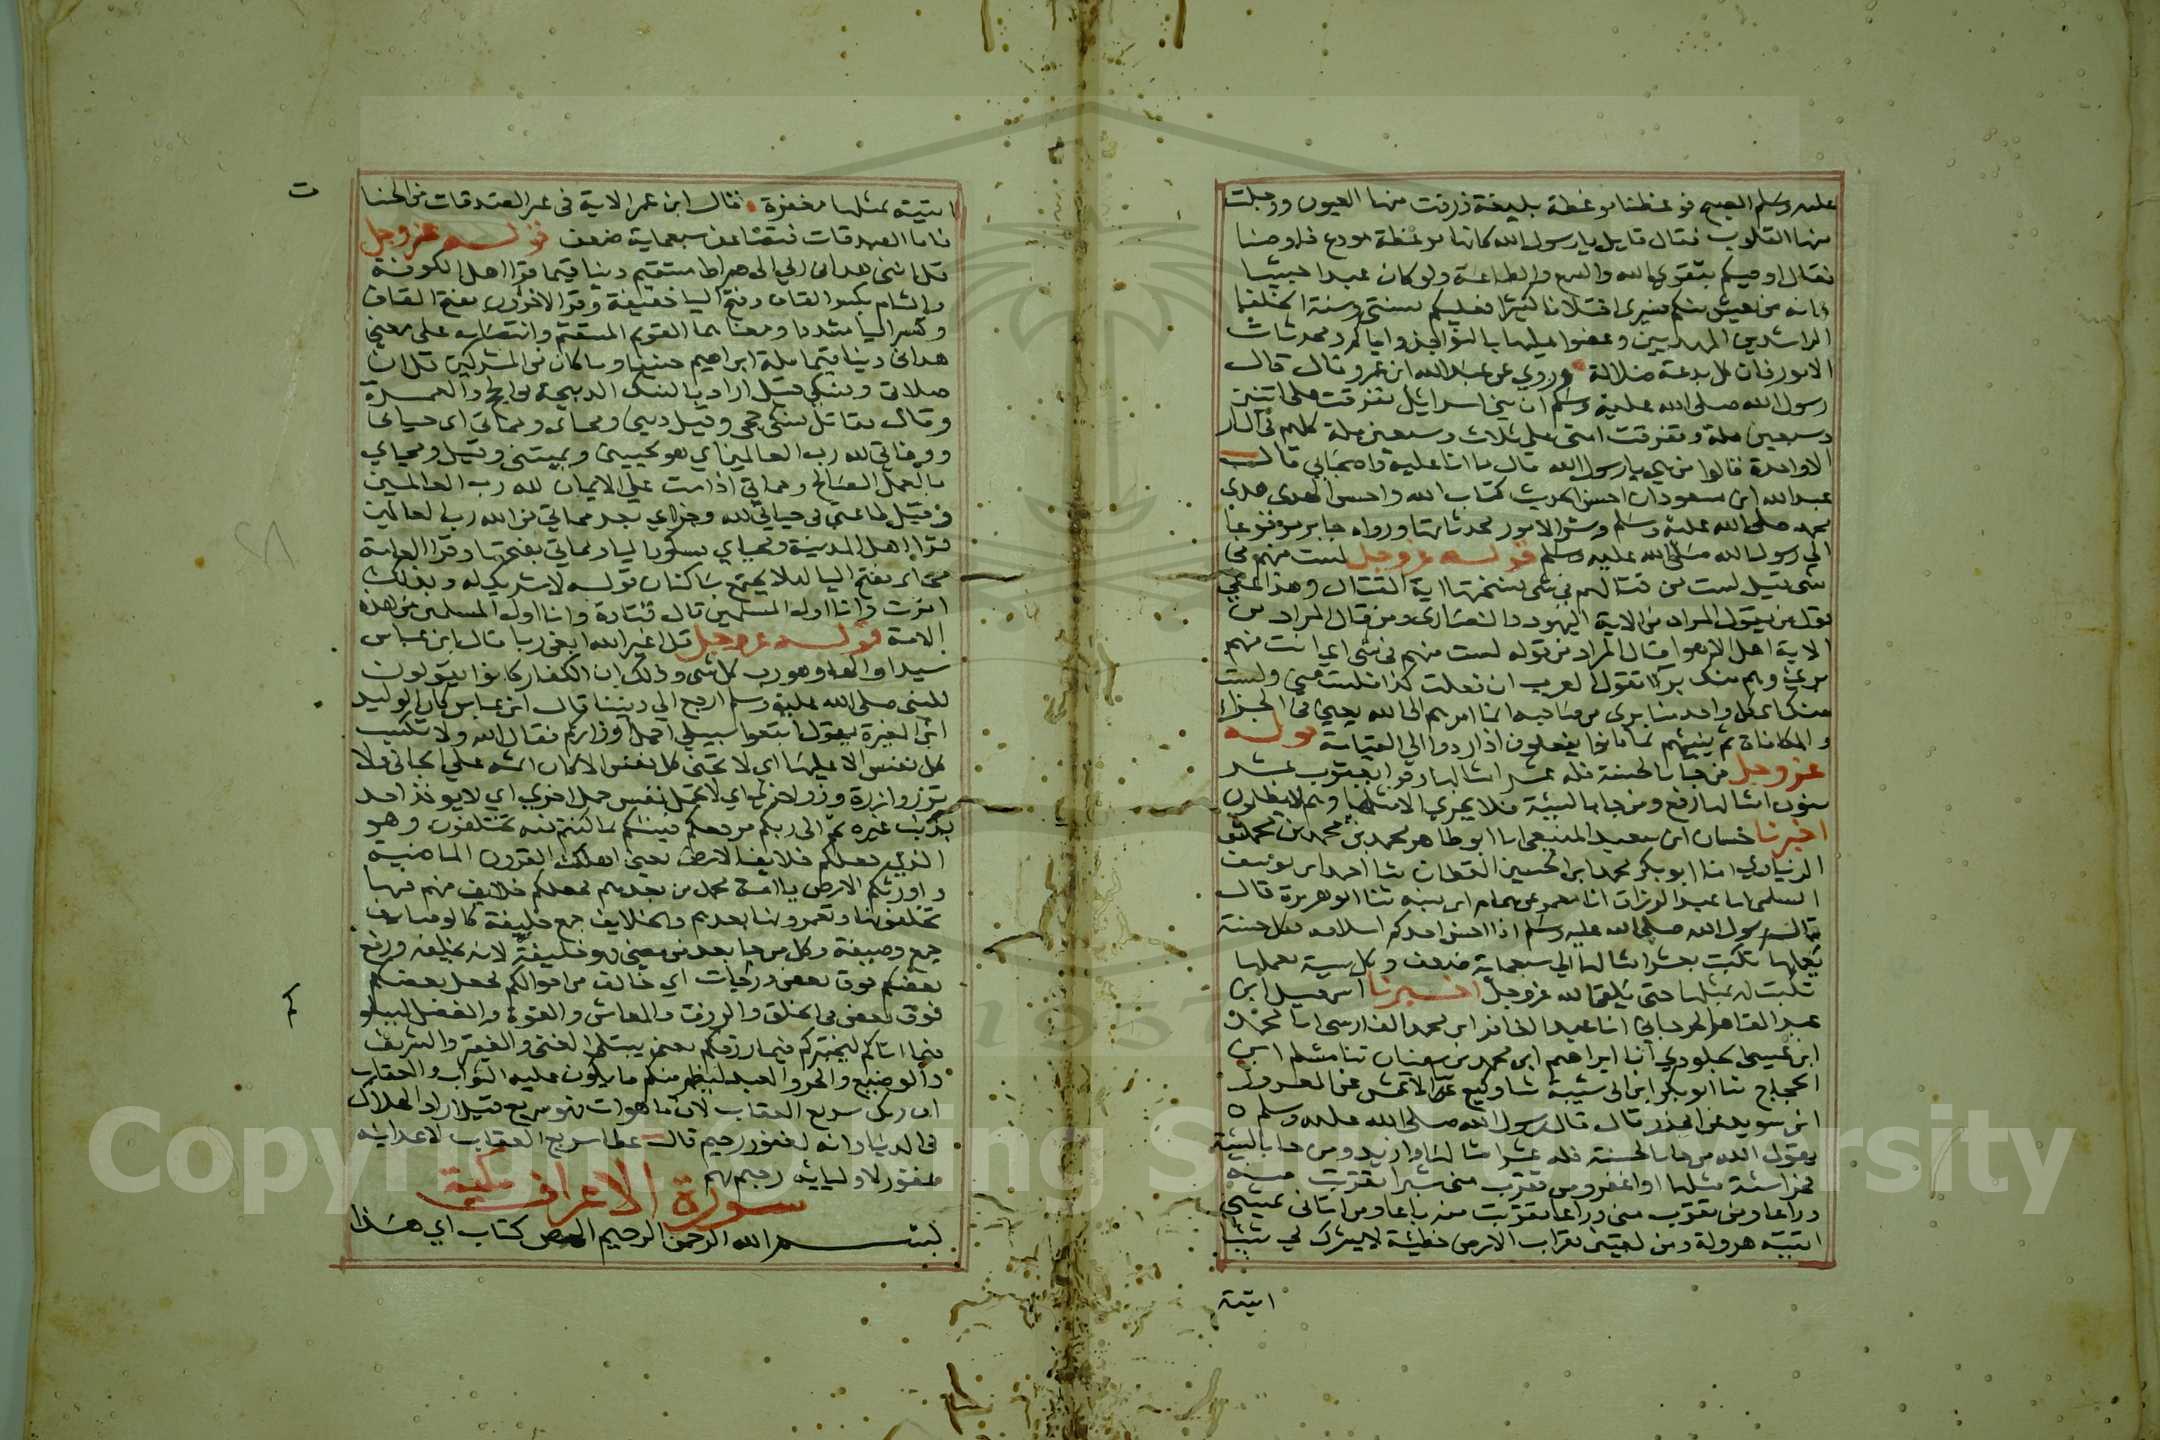 عليه وسلم الصبح فوعظنا موعظة بليغة ذرفت منها العيون ووجلت
منها القلوب فقال قايل يا رسول الله كانها موعظة مودع فاوصنا
فقال اوصيكم بتقوى الله والسمع والطاعة ولو كان عبدا حبشيا
فانه من يعيش منكم فسيرى اختلافا كثيرا فعليكم بسنتي وسنة الخلفا
الراشدين المهديين وعضوا عليها بالنواجذ واياكم ومحدثات
الامور فان كل بدعة ضلالة وروي عن عبد الله ابن عمرو قال قال
رسول الله صلى الله عليه وسلم ان بني اسرائيل تفرقت على اثنتين
وسبعين ملة وتفرقت امتي على ثلاث وسبعين ملة كلهم في النار
الا واحدة قالوا من هي يا رسول الله قال ما انا عليه واصحابي قال
عبد الله ابن مسعود ان احسن الحديث كتاب الله واحسن الهدى هدى
محمد صلى الله عليه وسلم وشر الامور محدثاتها ورواه جابر مرفوعا
الي رسول الله صلى الله عليه وسلم قوله عز وجل لست منهم في
شي قيل لست من قتالهم في شي نسختها اية القتال وهذا على
قول من يقول المراد من الاية اليهود والنصارى ومن قال المراد من
الاية اهل الاهوا قال المراد من قوله لست منهم في شي اي انت منهم
بري وهم منك برآ تقول العرب ان فعلت كذا فلست مني ولست
منك اي كل واحد منا بري من صاحبه انما امرهم الى الله يعني في الجزاء
والمكافاة ثم ينبيهم بما كانوا يفعلون اذا وردوا الى القيامة قوله
عز وجل من جا بالحسنة فله عشر امثالها وقرا يعقوب عشر
منون امثالها رفع ومن جا بالسيئة فلا يجزي الا مثلها وهم لا يظلمون
اخبرنا حسان ابن سعيد المنيعي انا ابو طاهر محمد بن محمد بن محمش
الزيادي انا ابو بكر محمد ابن الحسين القطان ثنا احمد ابن يوسف
السلمي انا عبد الرزاق انا معمر عن همام ابن منبه ثنا ابو هريرة قال
قال رسول الله صلى الله عليه وسلم اذا احسن احدكم اسلامه فكل حسنة
يعملها تكتب بعشر امثالها الي سبعماية ضعف وكل سيئة يعملها
تكتب له بمثلها حتى يلقى الله عز وجل اخبرنا اسمعيل ابن
عبد القاهر الجرجاني انا عبد الغافر ابن محمد الفارسي انا محمد
ابن عيسى الجلودي انا ابراهيم ابن محمد بن سفيان ثنا مسلم ابن
الحجاج ثنا ابو بكر ابن ابي شيبة ثنا وكيع عن الاعمش عن المعرور
ابن سويد عن ابي ذر قال قال رسول الله صلى الله عليه وسلم
يقول الله من جا بالحسنة فله عشر امثالها وازيد ومن جا بالسيئة
فجزا سيئة مثلها او اغفر ومن تقرب مني شبرا تقربت منه
ذراعا ومن تقرب مني ذراعا تقربت منه باعا ومن اتاني يمشي
اتيته هرولة ومن لقيني بقراب الارض خطيئة لا يشرك بي شيئا
اتيته
ت
اتيته بمثلها مغفرة قال ابن عمر الاية في غير الصدقات من الحسنا
فاما الصدقات فتضاعف سبعماية ضعف قوله عز وجل
قل انني هداني ربي الى صراط مستقيم دينا قيما قرا اهل الكوفة
والشام بكسر القاف وفتح اليا خفيفة وقرا الاخرون بفتح القاف
وكسر اليا مشددا ومعناهما القويم المستقيم وانتصابه على معنى
هداني دينا قيما ملة ابراهيم حنيفا وما كان من المشركين قل ان
صلاتي ونسكي قيل اراد بالنسك الذبيحة في الحج والعمرة
وقال مقاتل نسكي حجي وقيل ديني ومحياي ومماتي اي حياتي
ووفاتي لله رب العالمين اي هو يحييني ويميتني وقيل ومحياي
بالعمل الصالح ومماتي اذا مت على الايمان لله رب العالمين
وقيل طاعتي في حياتي لله وجزاي بعد مماتي من الله رب العالمين
قرا اهل المدينة ومحياي بسكون اليا ومماتي بفتحها وقرا العامة
محياي بفتح اليا ليلا يجتمع ساكنان قوله لا شريك له وبذلك
امرت وانا اول المسلمين قال قتادة وانا اول المسلمين من هذه
الامة قوله عز وجل قل اغير الله ابغي ربا قال ابن عباس
سيدا والها وهو رب كل شي وذلك ان الكفار كانوا يقولون
للنبي صلى الله عليه وسلم ارجع الي ديننا قال ابن عباس كان الوليد
ابن المغيرة يقول اتبعوا سبيلي احمل اوزاركم فقال الله ولا تكسب
كل نفس الا عليها اي لا تجني كل نفس الا كان اثمه على الجاني ولا
تزر وازرة وزر اخرى اي لا تحمل نفس حمل اخرى اي لا يوخذ احد
بذنب غيره ثم الى ربكم مرجعكم فينبئكم بما كنتم فيه تختلفون وهو
الذي جعلكم خلايف الارض يعني اهلك القرون الماضية
واورثكم الارض يا امة محمد من بعدهم فجعلكم خلايف منهم فيها
تخلفونها وتعمرونها بعدهم والخلايف جمع خليفة كالوصايف
جمع وصيفة وكل من جا بعد من مضى فهو خليفة لانه يخلفه ورفع
بعضكم فوق بعض درجات اي خالف من احوالكم فجعل بعضكم
فوق بعض في الخلق والرزق والمعاش والقوة والفضل ليبلوكم
فيما اتاكم ليختبركم فيما رزقكم يعني يبتلي الغني والفقير والشريف
والوضيع والحر والعبد ليظهر منكم ما يكون عليه الثواب والعقاب
ان ربك سريع العقاب لان ما هو ات فهو سريع قيل اراد الهلاك
في الدنيا وانه لغفور رحيم قال عطا سريع العقاب لاعدايه
غفور لاوليايه رحيم بهم
سورة الاعراف مكية
بسم الله الرحمن الرحيم المص كتاب اي هذا